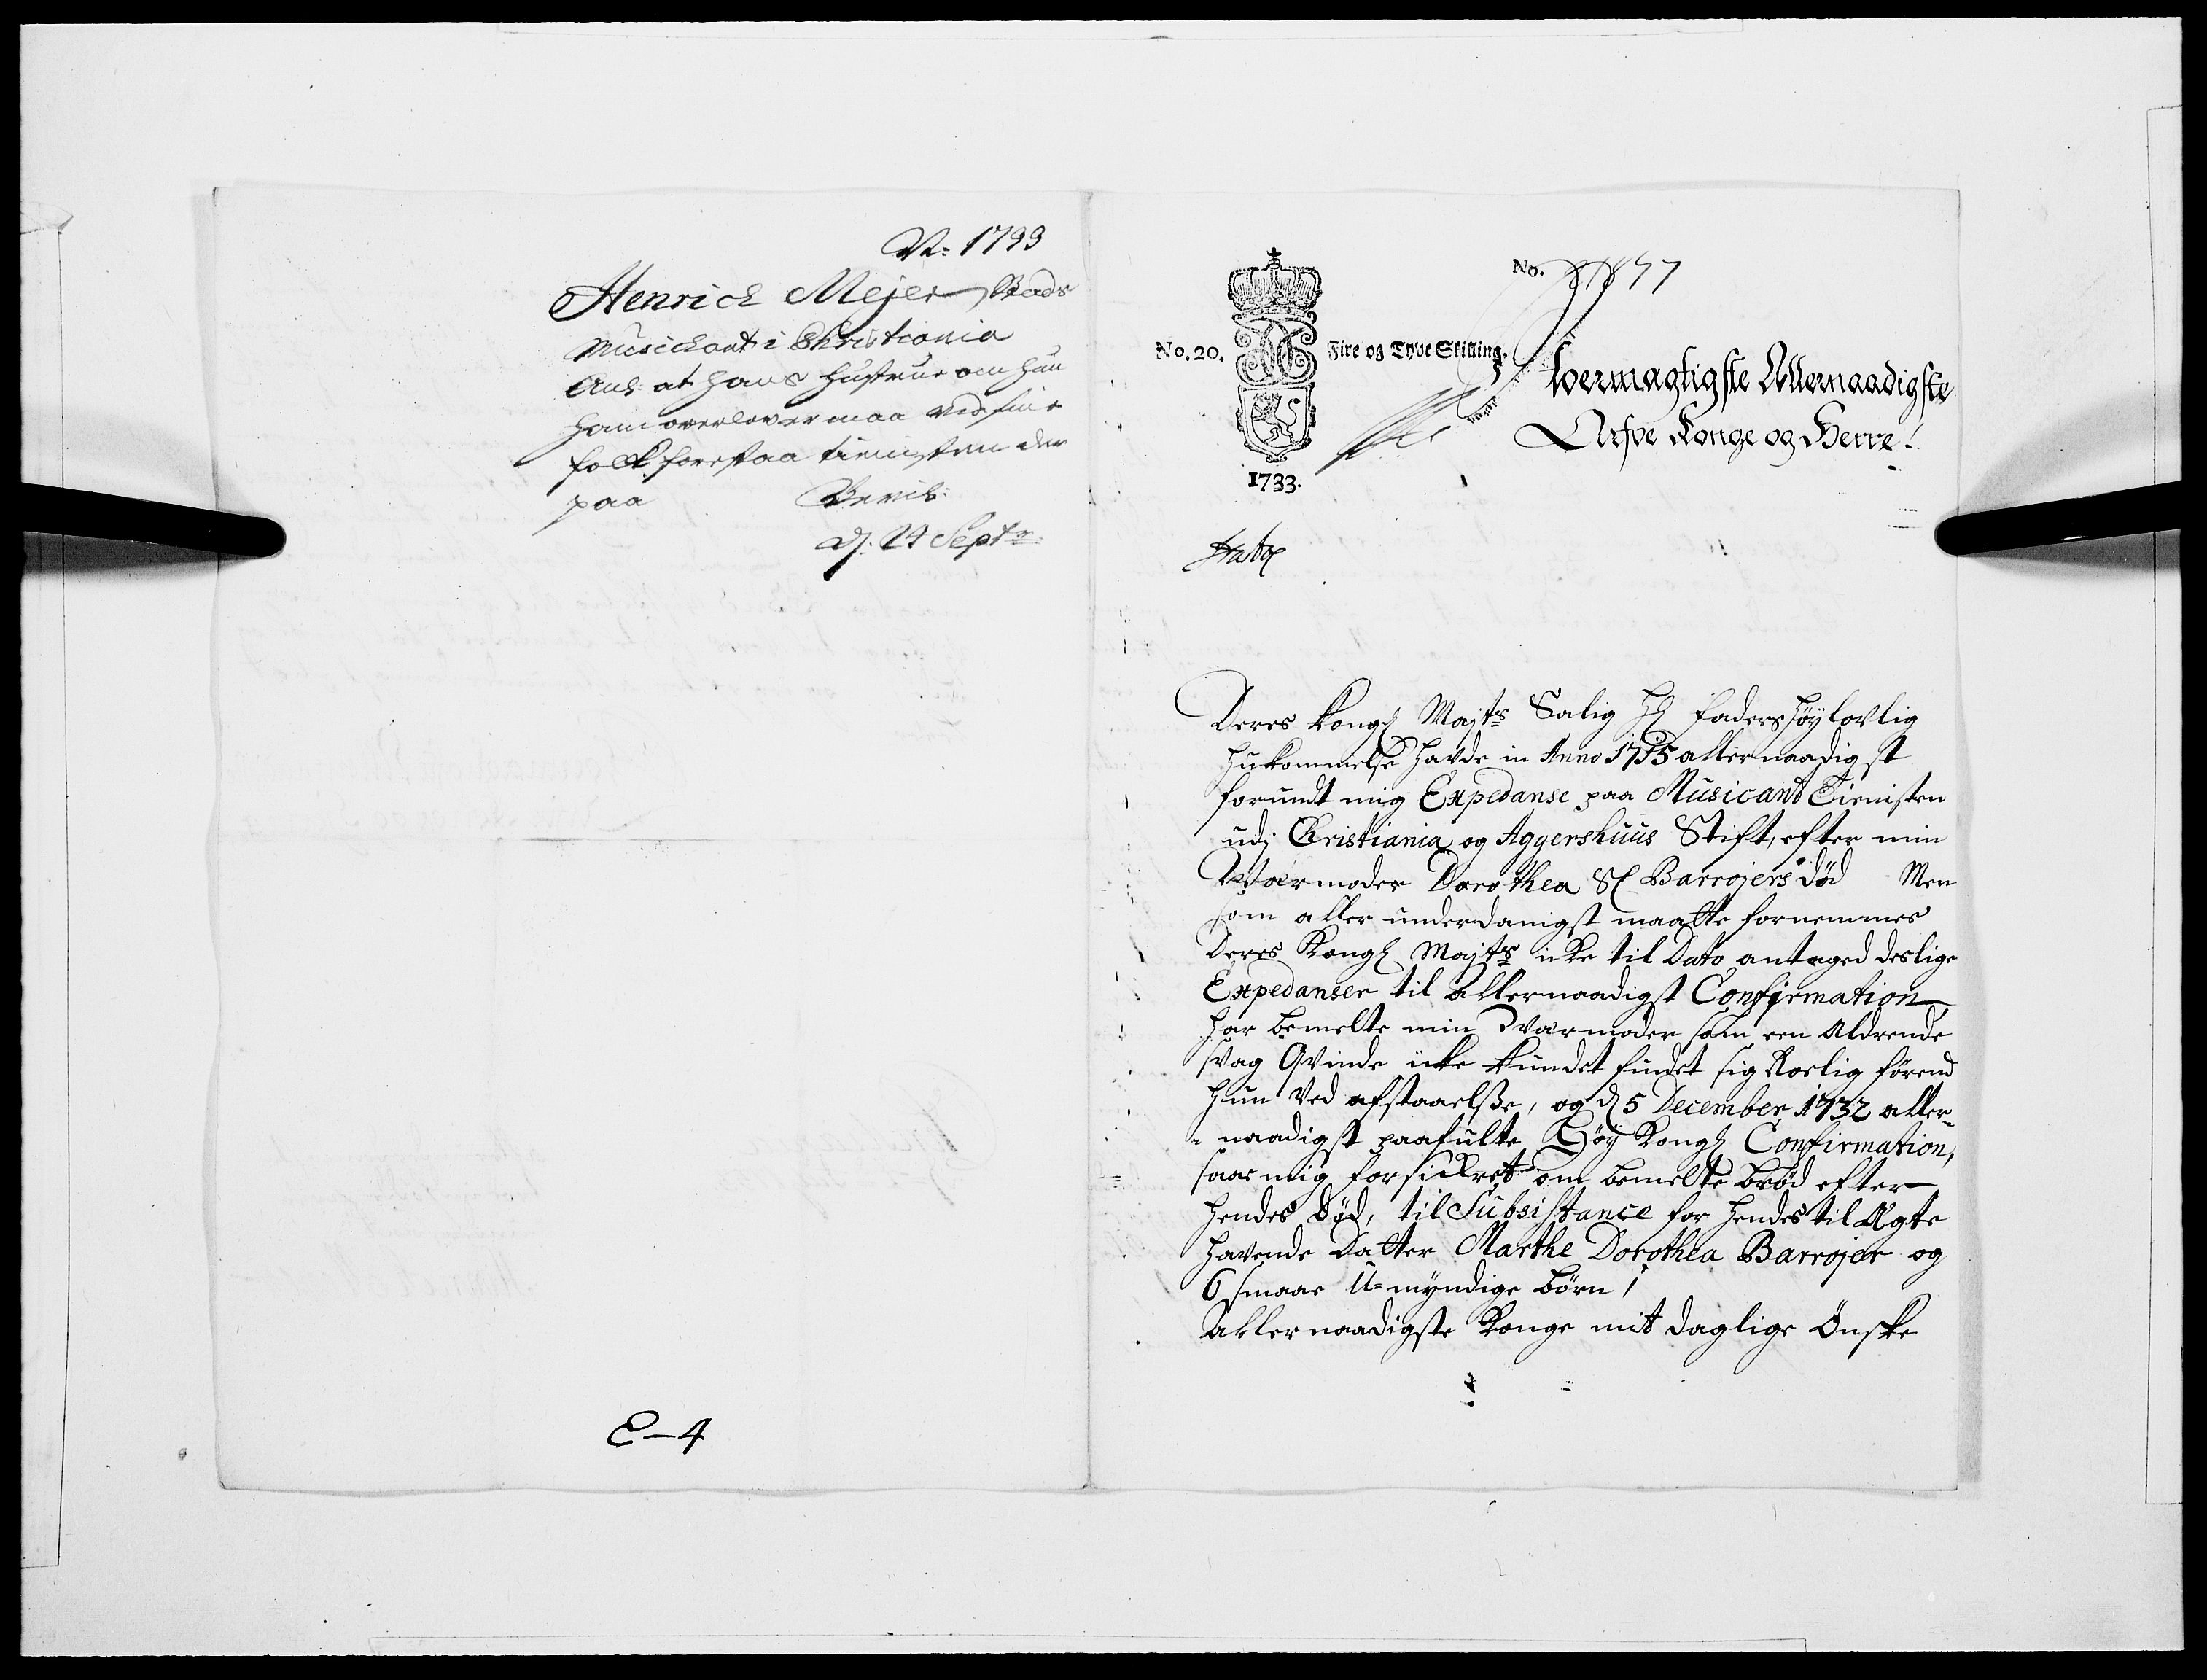 No: 1733
Henrich Mejer Stads
Musickant i Christiania
Ans: at hans Hustrue om hun
ham overlever maa ved sine
folck forestaa tienisten der
paa Bevilt:
dj: 24 Septr:
E-4
No.
No. 20. Fire og Tyve Skilling.
1733.
Stormægtigste Allernaadigste
Arfve Konge og Herre!
Deres Kongl Majts Salig Hr Faders høylovlig
hukommelse havde in Anno 1715 allernaadigst
forundt mig Expedanse paa Musicant Tienisten
udj Christiania og Aggershuus Stift, efter min
Værmoder Dorothea Sl Barrojers død Men
som aller underdanigst maatte fornemmes
Deres Kongl Majts icke til Dato antaged deslige
Expedanser til allernaadigst Confirmation
har bemelte min Værmoder som een Aldrende
svag Qvinde icke kundet findet sig Roelig førend
hun Ved afstaaelsse, og d 5 December 1732 aller-
naadigst paafulte Høy Kongl Confirmation,
saae mig forsickret om bemelte brød efter
hendes Død, til Subsistance for hendes til Ægte
havende Datter Marthe Dorothea Barrojer og
6 smaae U-myndige børn /
Allernaadigste Konge mit daglige Ønske